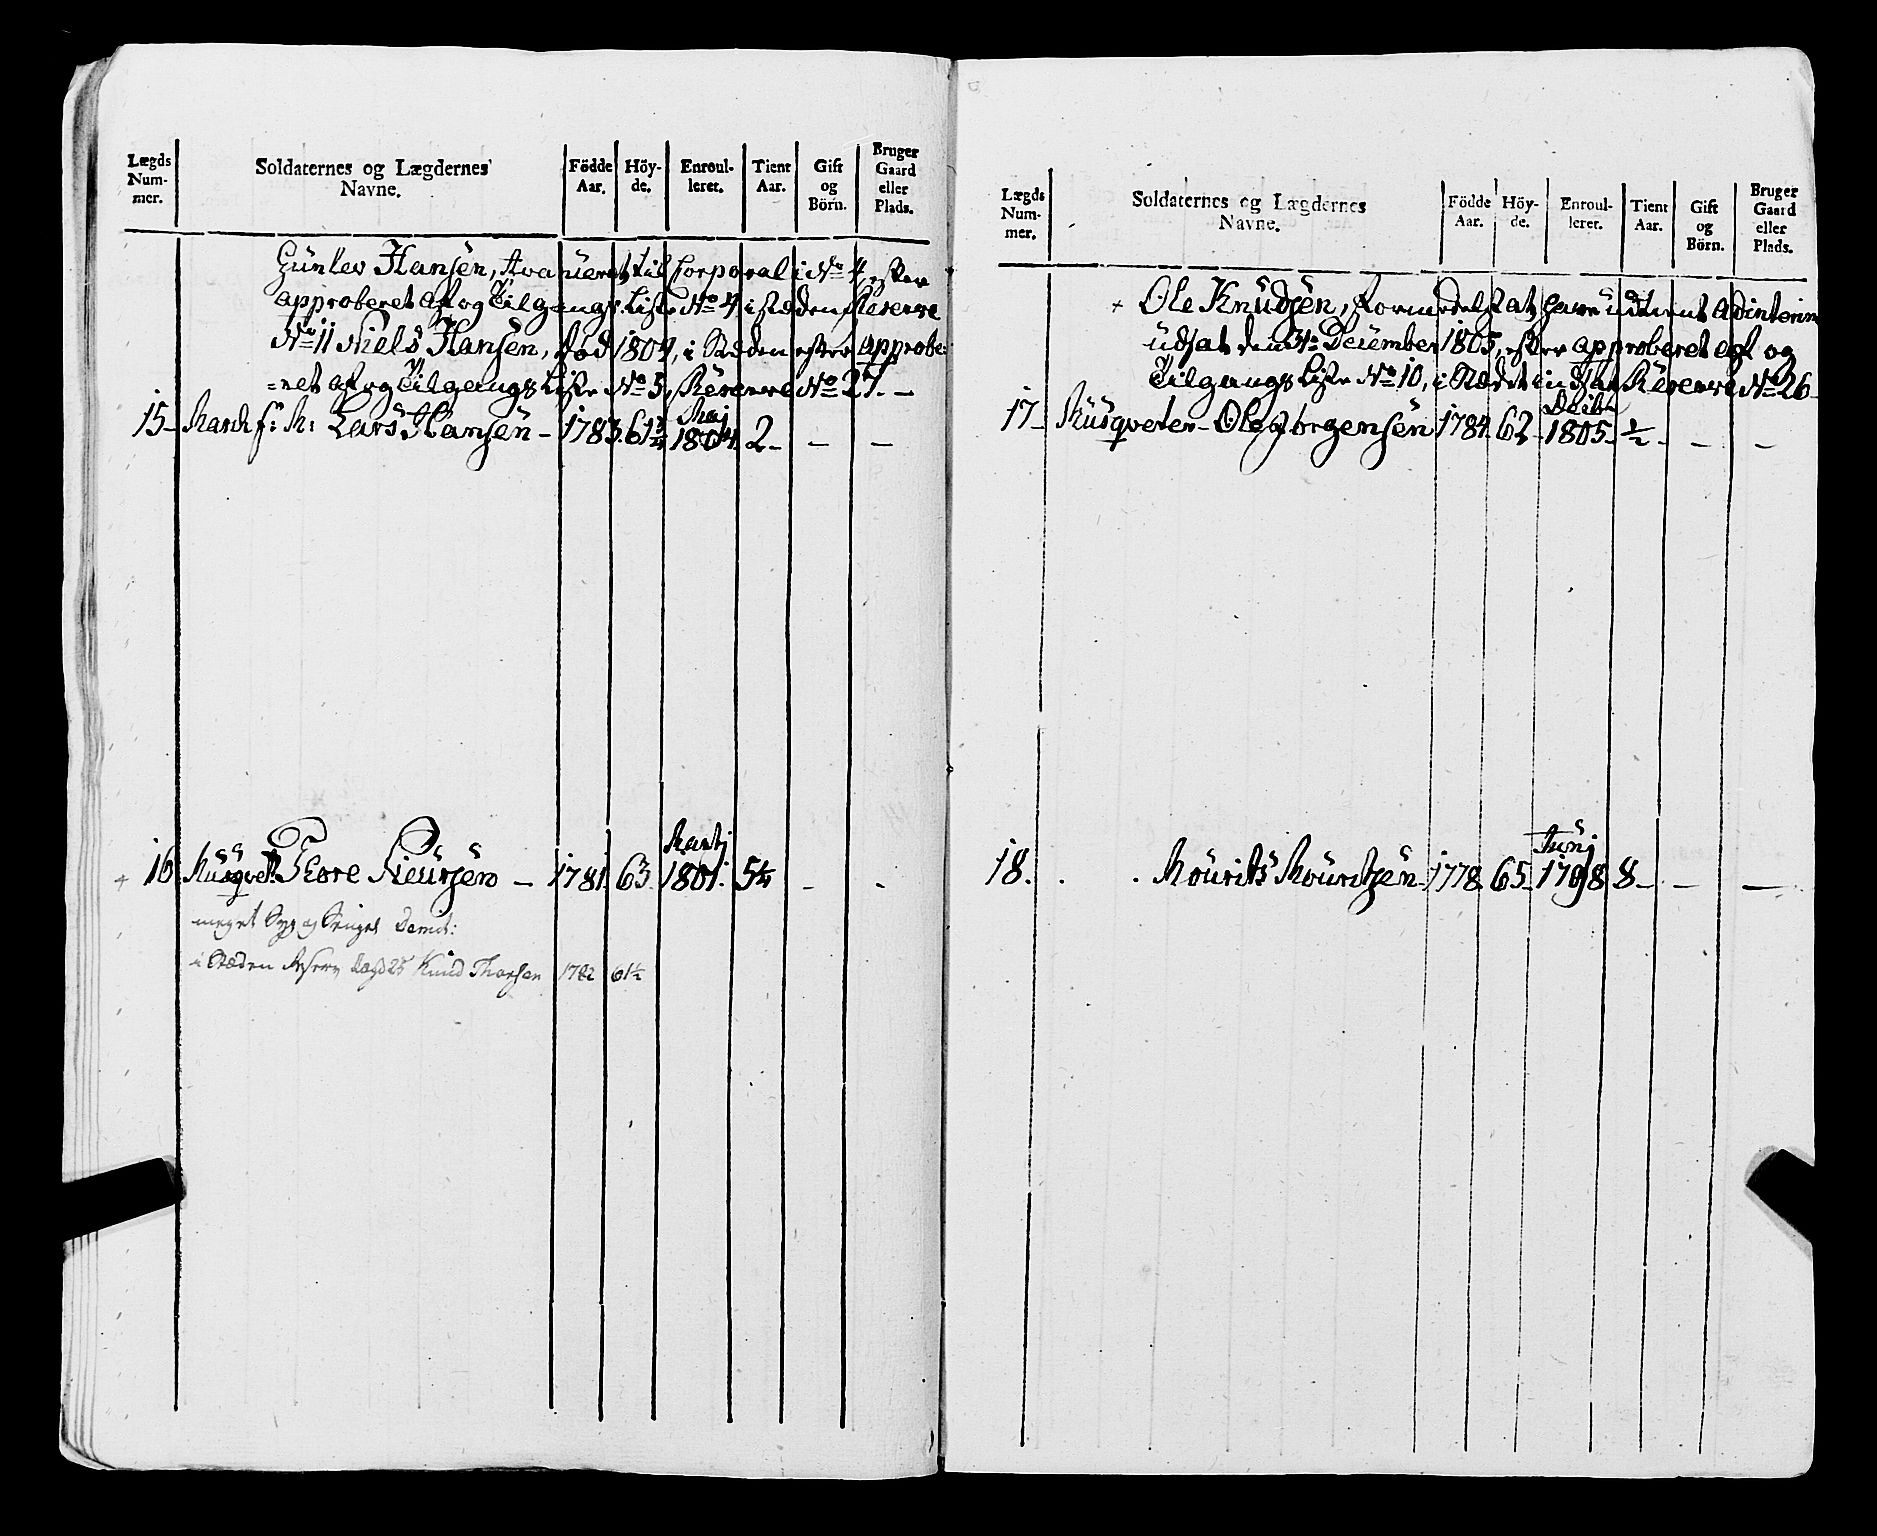 Lægds Num- mer.
Soldaternes og Lægdernes Navne.
Födde Aar.
Höy- de.
Enroul- leret.
Tient Aar.
Gift og Börn.
Bruger Gaard eller Plads.
Gunlev Hansen, Avanieret til Corporal i No 4, efter
approberet Af og Tilgangs Liste No 4 i stæden Reserve
No 11 Niels Hansen, död 1804, i Stæden efter approbe-
=ret af og Tilgangs Liste No 5, Reserve No 27. -
15 - f: M: Lars Hansen - 1783. 61 3/4 Maj 1804. 2 - - -
+ 16 Musqvet. Tore Sieursen - 1781. 63. Martj 1801. 5 1/4 - -
meget Syg og Senget
i Stæden Reserv Lægd 25 Knud Thorsen 1782 61½
Lægds Num- mer.
Soldaternes og Lægdernes Navne.
Födde Aar.
Höy- de.
Enroul- leret.
Tient Aar.
Gift og Börn.
Bruger Gaard eller Plads.
+ Ole Knudsen, formedelst at have udtient Adinterim
udsat den December 1805, efter approberet af og
Tilgangs Liste No 10, i Stædet indsat Reserve No 26 -
17 - Musqveter - Ole Jörgensen 1784. 62 - Decbr 1805 - ½ - - -
18. Mourits Mouritzen - 1778 65 - Junj 1798 8 - - -